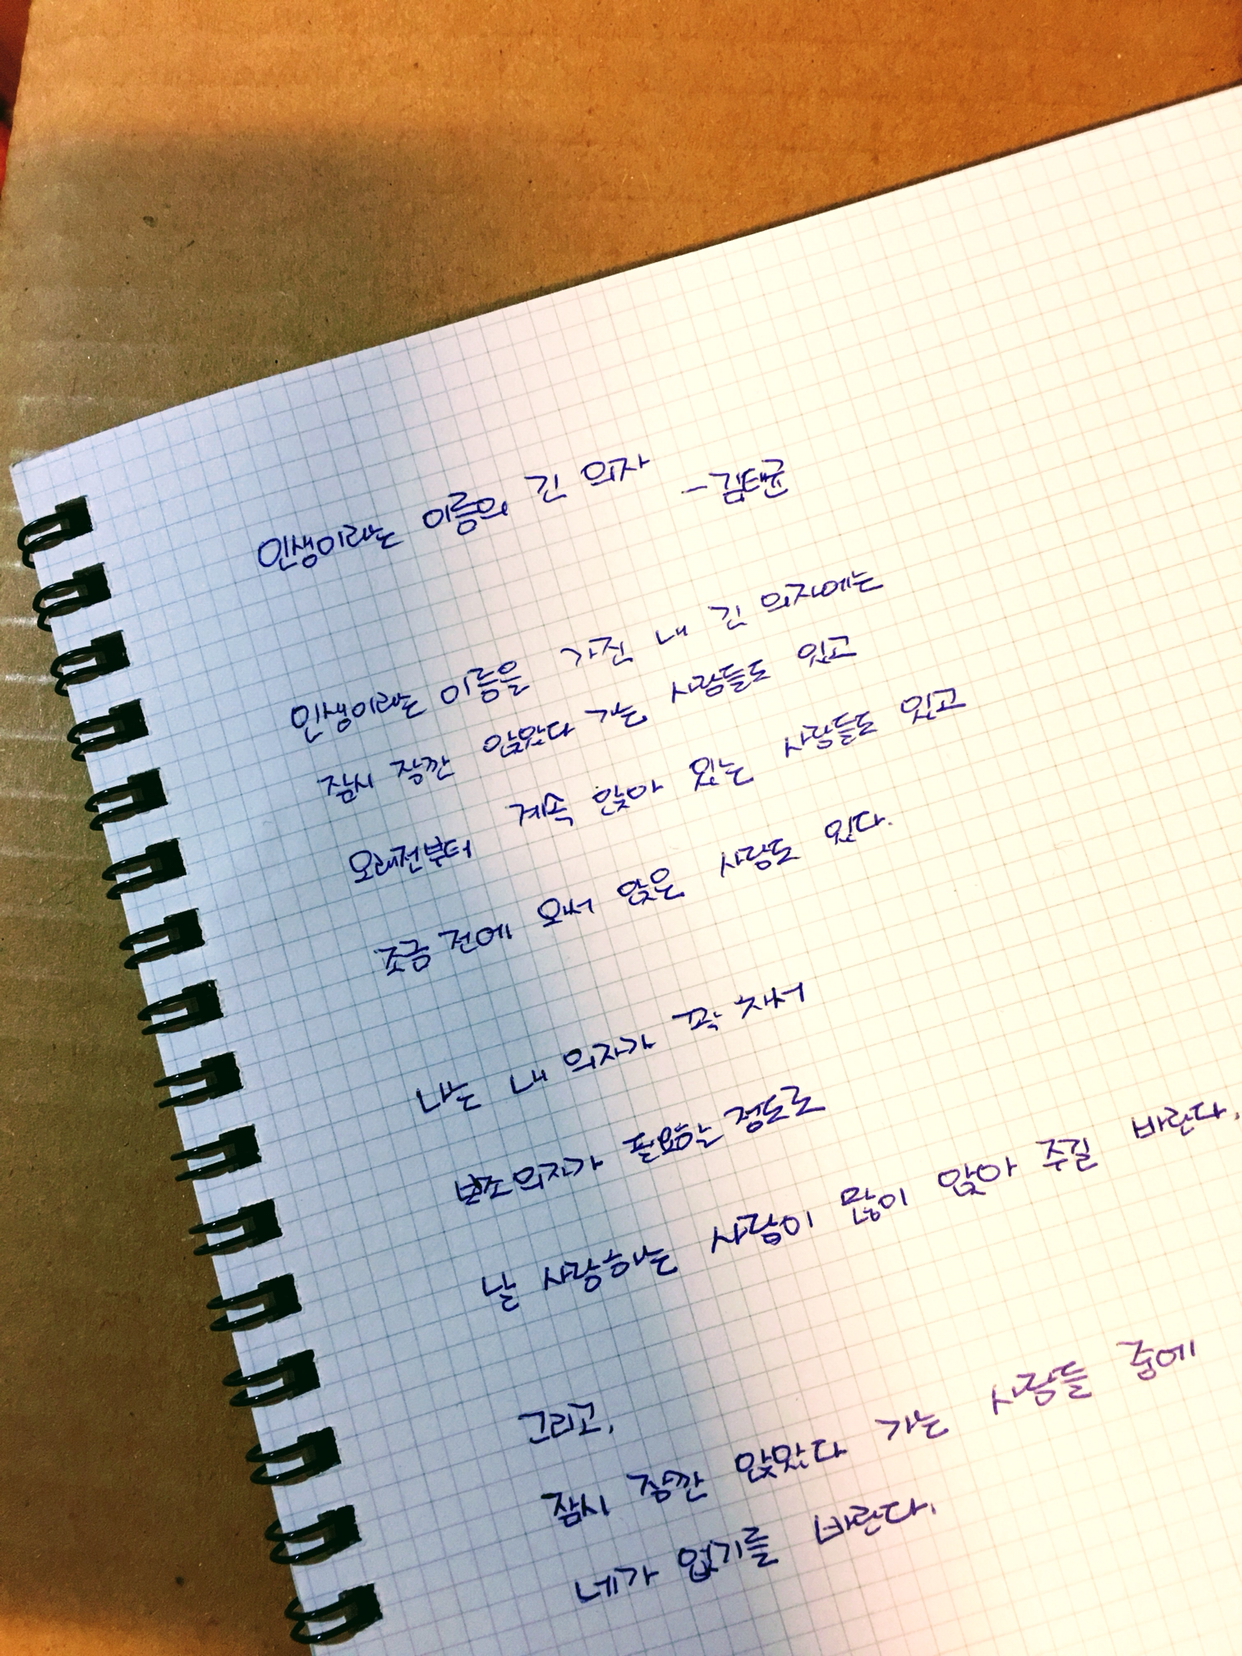 인생이라는 이름의 긴 의자
-김태균
인생이라는 이름을 가진 내 긴 의자에는
잠시 잠깐 앉았다 가는 사람들도 있고
오래전부터 계속 앉아 있는 사람들도 있고
조금 전에 와서 앉은 사람도 있다.
나는 내 의자가 꽉 차서
보조의자가 필요할 정도로
날 사랑하는 사람이 많이 앉아 주길 바란다.
그리고,
잠시 잠깐 앉았다 가는 사람들 중에
네가 없기를 바란다.